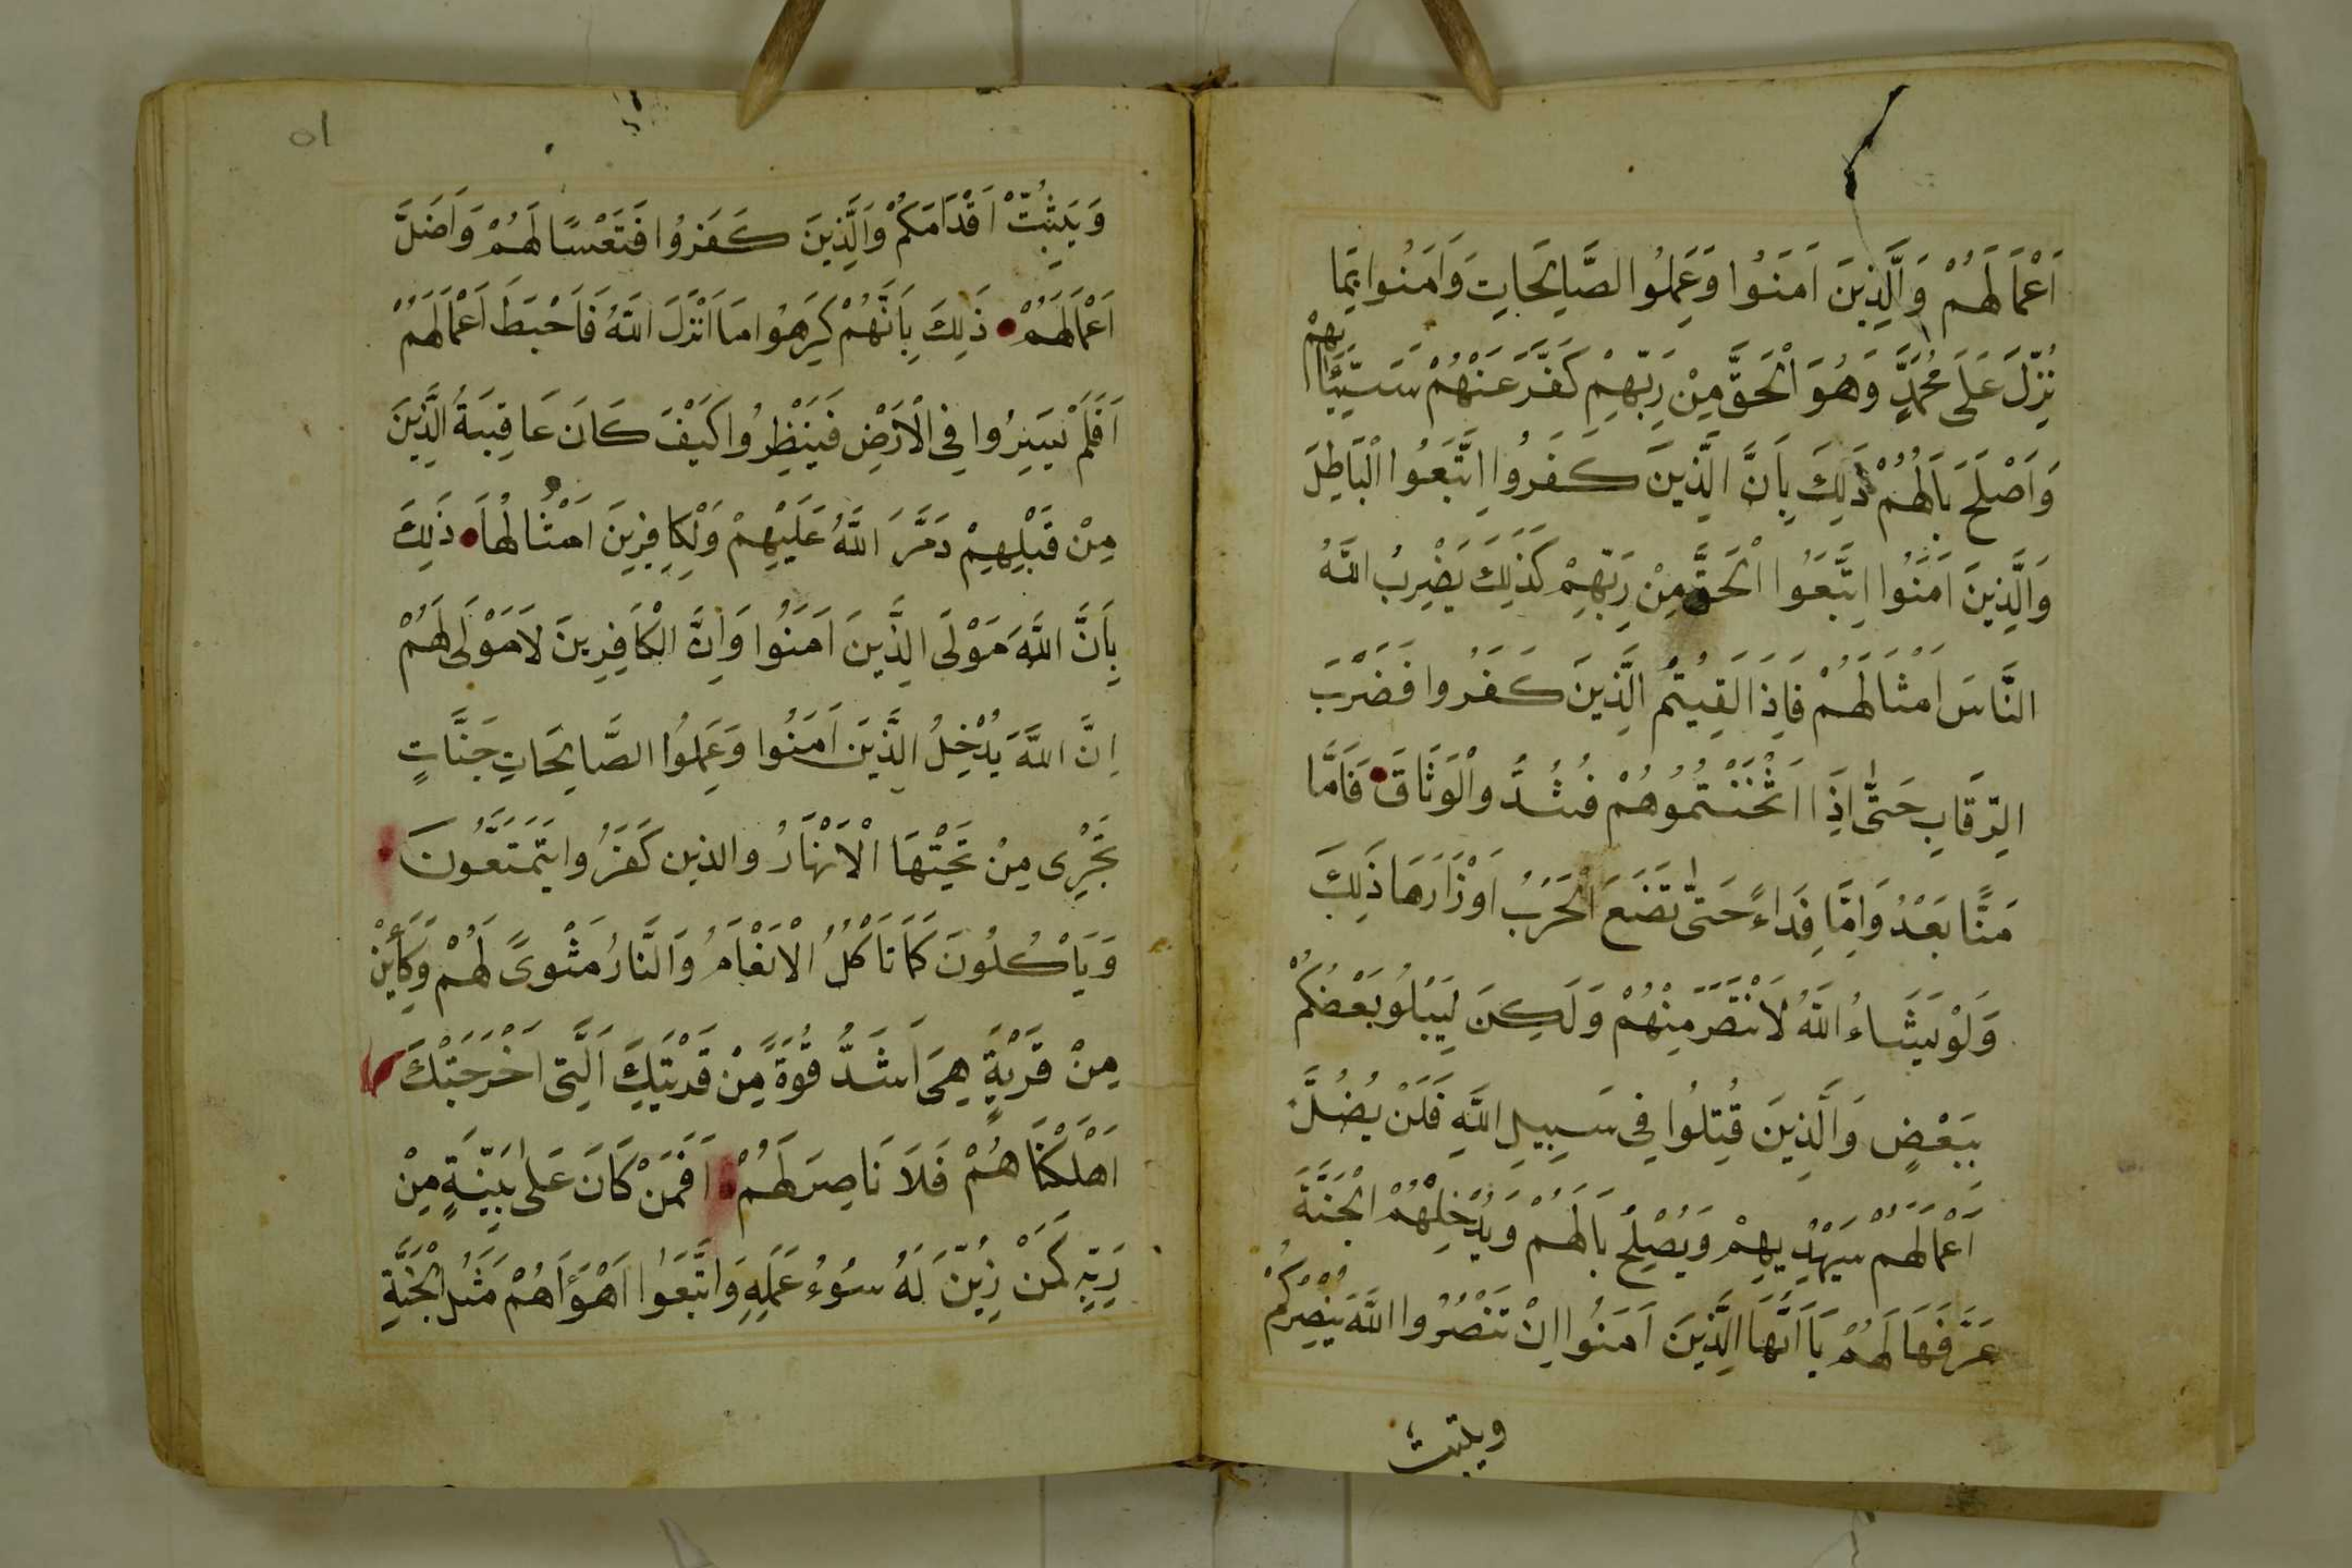 اَعْمَالَهُمْ وَالَّذِينَ اٰمَنُوا وَعَمِلُوا الصَّالِحَاتِ وَاٰمَنُوا بِمَا
نُزِّلَ عَلَى مُحَمَّدٍ وَهُوَ الْحَقُّ مِنْ رَبِّهِمْ كَفَّرَ عَنْهُمْ سَيِّئَا
بِهِمْ
وَاَصْلَحَ بَالَهُمْ ذَلِكَ بِاَنَّ الَّذِينَ كَفَرُوا اتَّبَعُوا الْبَاطِلَ
وَاَنَّ الَّذِينَ اٰمَنُوا اتَّبَعُوا الْحَقَّ مِنْ رَبِّهِمْ كَذَلِكَ يَضْرِبُ اللَّهُ
النَّاسَ اَمْثَالَهُمْ فَاِذَا لَقِيتُمُ الَّذِينَ كَفَرُوا فَضَرْبَ
الرِّقَابِ حَتَّى اِذَا اَثْخَنْتُمُوهُمْ فَشُدُّوا الْوَثَاقَ فَاَمَّا
مَنًّا بَعْدُ وَاِمَّا فِدَاءً حَتَّى تَضَعَ الْحَرْبُ اَوْزَارَهَا ذَلِكَ
وَلَوْ يَشَاءُ اللَّهُ لَانْتَصَرَ مِنْهُمْ وَلَكِنْ لِيَبْلُوَ بَعْضَكُمْ
بِبَعْضٍ وَالَّذِينَ قُتِلُوا فِي سَبِيلِ اللَّهِ فَلَنْ يُضِلَّ
اَعْمَالَهُمْ سَيَهْدِيهِمْ وَيُصْلِحُ بَالَهُمْ وَيُدْخِلُهُمُ الْجَنَّةَ
عَرَّفَهَا لَهُمْ يَا اَيُّهَا الَّذِينَ اٰمَنُوا اِنْ تَنْصُرُوا اللَّهَ يَنْصُرْكُمْ
ويثبت
٥١
وَيُثَبِّتْ اَقْدَامَكُمْ وَالَّذِينَ كَفَرُوا فَتَعْسًا لَهُمْ وَاَضَلَّ
اَعْمَالَهُمْ ذَلِكَ بِاَنَّهُمْ كَرِهُوا مَا اَنْزَلَ اللَّهُ فَاَحْبَطَ اَعْمَالَهُمْ
اَفَلَمْ يَسِيرُوا فِي الْاَرْضِ فَيَنْظُرُوا كَيْفَ كَانَ عَاقِبَةُ الَّذِينَ
مِنْ قَبْلِهِمْ دَمَّرَ اللَّهُ عَلَيْهِمْ وَلِلْكَافِرِينَ اَمْثَالُهَا ذَلِكَ
بِاَنَّ اللَّهَ مَوْلَى الَّذِينَ اٰمَنُوا وَاَنَّ الْكَافِرِينَ لَا مَوْلَى لَهُمْ
اِنَّ اللَّهَ يُدْخِلُ الَّذِينَ اٰمَنُوا وَعَمِلُوا الصَّالِحَاتِ جَنَّاتٍ
تَجْرِي مِنْ تَحْتِهَا الْاَنْهَارُ والذين كَفَرُوا يَتَمَتَّعُونَ
وَيَاْكُلُونَ كَمَا تَاْكُلُ الْاَنْعَامُ وَالنَّارُ مَثْوًى لَهُمْ وَكَاَيِّنْ
مِنْ قَرْيَةٍ هِيَ اَشَدُّ قُوَّةً مِنْ قَرْيَتِكَ الَّتِي اَخْرَجَتْكَ
اَهْلَكْنَاهُمْ فَلَا نَاصِرَ لَهُمْ اَفَمَنْ كَانَ عَلَى بَيِّنَةٍ مِنْ
رَبِّهِ كَمَنْ زُيِّنَ لَهُ سُوءُ عَمَلِهِ وَاتَّبَعُوا اَهْوَاَهُمْ مَثَلُ الْجَنَّةِ